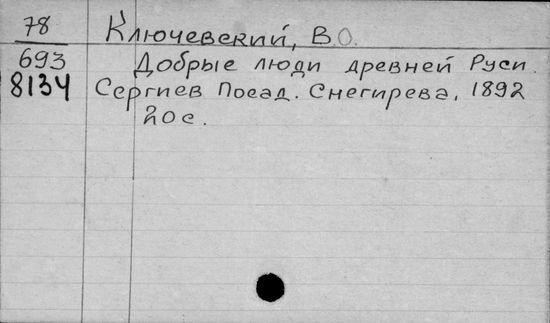 78 Ключевский, В.О.
693 Добрые люди древней Руси.
8134 Сергиев Посад. Снегирева, 1892
20с.